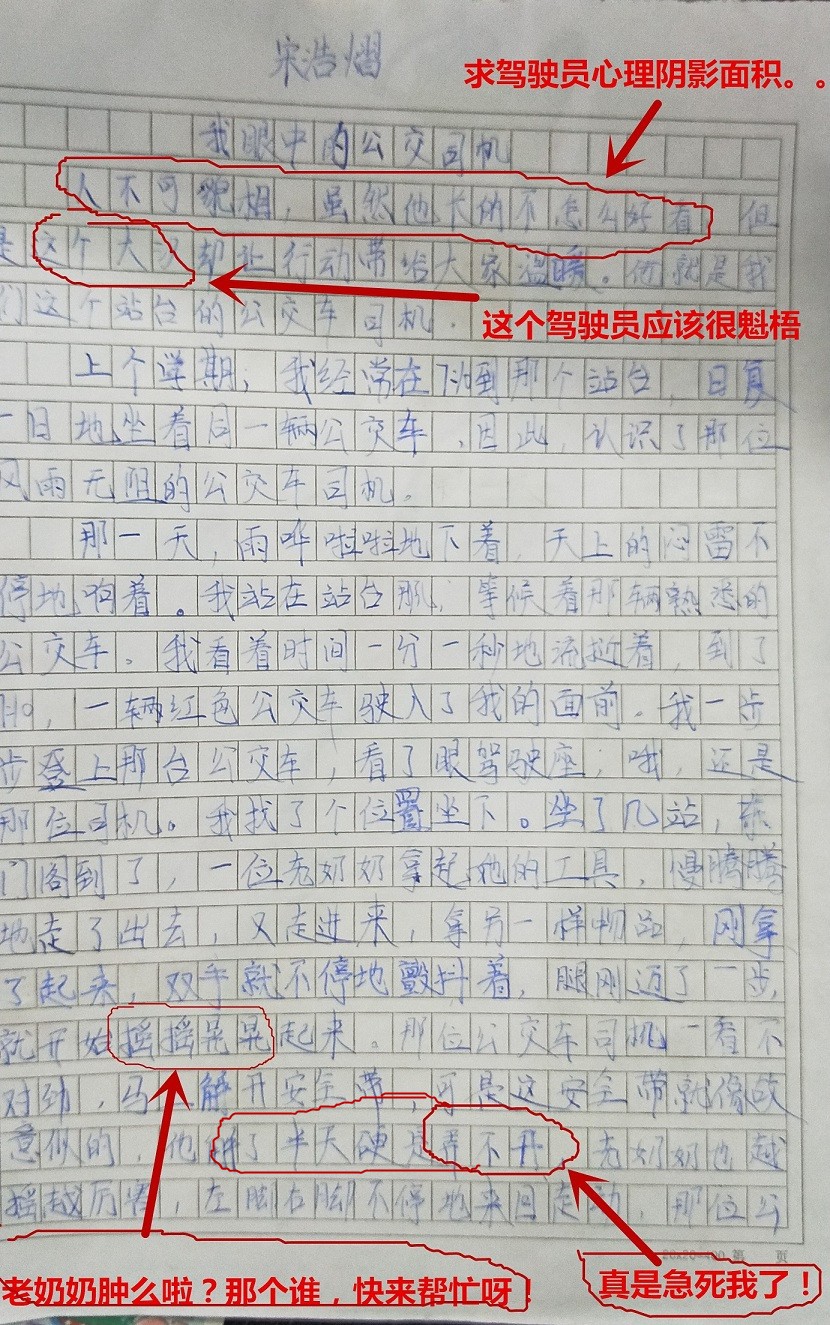 宋浩熠
求驾驶员心理阴影面积。。
我眼中的公交司机
人不可貌相，虽然他长的不怎么好看 但
是这个大 却让行动带给大家温暖。他就是我
们这个站台的公交车司机.
这个驾驶员应该很魁梧
上个学期，我经常在7:10到那个站台，日复
一日地坐着同一辆公交车，因此，认识了那位
风雨无阻的公交车司机。
那一天，雨哗啦啦地下着，天上的闷雷不
停地响着。我站在站台 ，等候着那辆熟悉的
公交车。我看着时间一分一秒地流逝着，到了
，一辆红色公交车驶入了我的面前。我一步
步登上那台公交车，看了眼驾驶座；哦，还是
那位司机。我找了个位置坐下。坐了几站，东
门阁到了，一位老奶奶拿起她的工具，慢腾腾
地走了出去，又走进来，拿另一样物品，刚拿
了起来，双手就不停地颤抖着，腿刚迈了一步，
就开始摇摇晃晃起来。那位公交车司机一看不
对劲，马 解开安全带，可是这安全带就像故
意似的，他解了半天硬是弄不开，老奶奶也越
摇越厉害，左脚右脚不停地来回走动，那位公
20×20=400 第 页
老奶奶肿么啦？那个谁，快来帮忙呀！
真是急死我了！